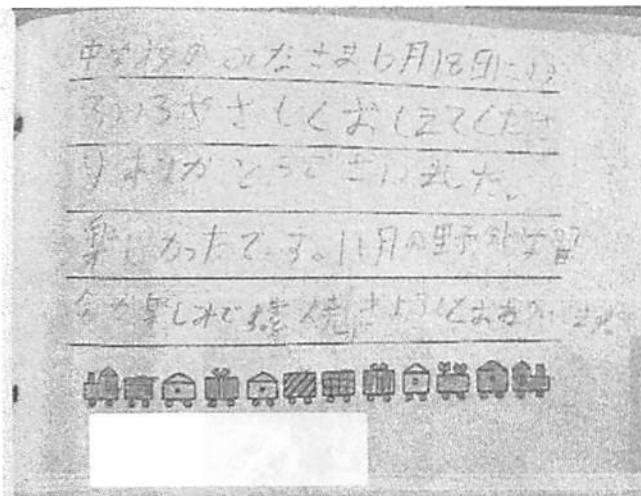 中学校のみなさま6月18日にい
ろいろやさしくおしえてくださ
りありがとうございました。
楽しかったです。11月の野外学習
会が楽しみです。焼きよろしくおねがいします